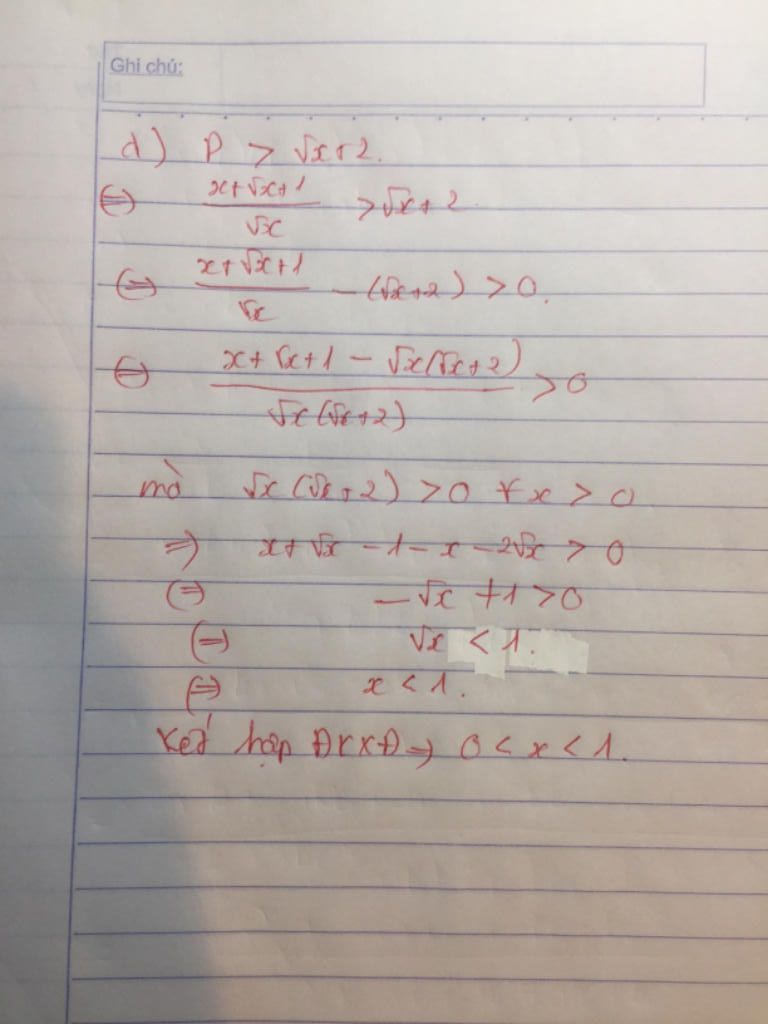 Ghi chú:
d) P > √x+2.
(=) x+√x+1 / √x > √x+2
(=) x+√x+1 / √x - (√x+2) > 0.
(=) x+√x+1 - √x(√x+2) / √x(√x+2) > 0
mà √x(√x+2) > 0 ∀x > 0
=) x+√x -1-x-2√x > 0
(=) -√x +1 > 0
(=) √x < 1.
(=) x < 1.
Kết hợp ĐKXĐ => 0 < x < 1.